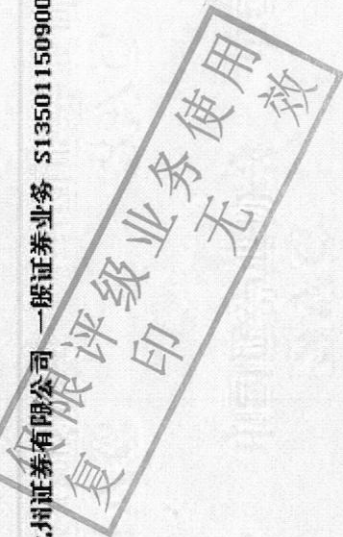 州证券有限公司 一般证券业务 S1350115090
仅限评级业务使用
复印无效